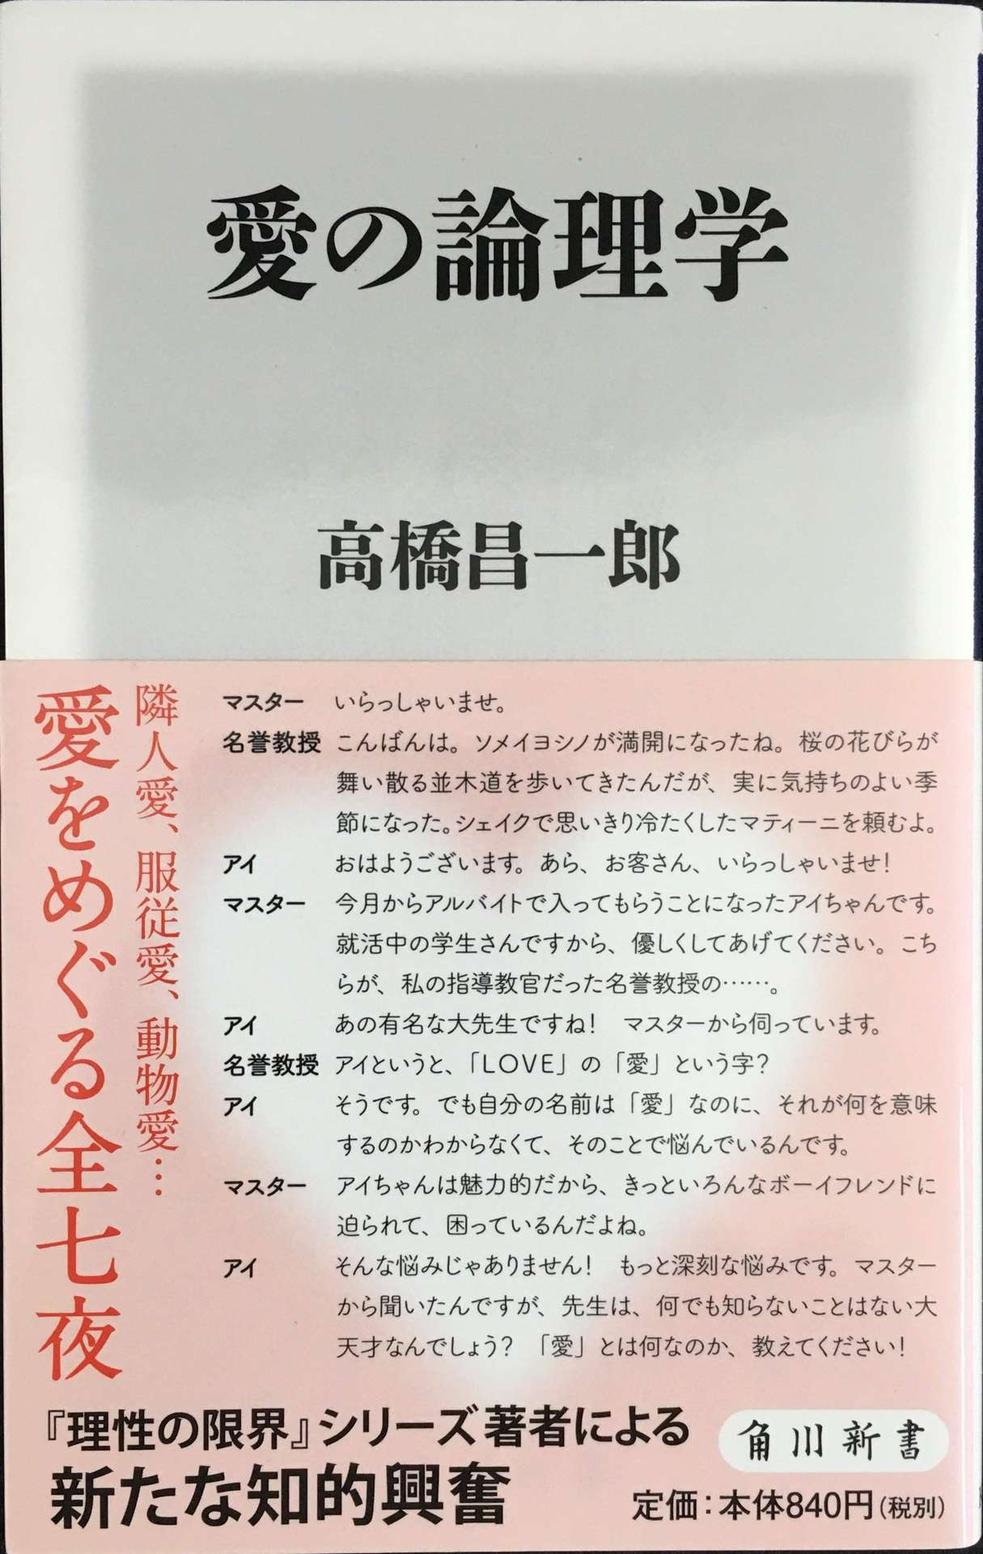 愛の論理学
高橋昌一郎
隣人愛、服従愛、動物愛…
愛をめぐる全七夜
マスター　いらっしゃいませ。
名誉教授　こんばんは。ソメイヨシノが満開になったね。桜の花びらが
舞い散る並木道を歩いてきたんだが、実に気持ちのよい季
節になった。シェイクで思いきり冷たくしたマティーニを頼むよ。
アイ　おはようございます。あら、お客さん、いらっしゃいませ！
マスター　今月からアルバイトで入ってもらうことになったアイちゃんです。
就活中の学生さんですから、優しくしてあげてください。こち
らが、私の指導教官だった名誉教授の……。
アイ　あの有名な大先生ですね！　マスターから伺っています。
名誉教授　アイというと、「LOVE」の「愛」という字？
アイ　そうです。でも自分の名前は「愛」なのに、それが何を意味
するのかわからなくて、そのことで悩んでいるんです。
マスター　アイちゃんは魅力的だから、きっといろんなボーイフレンドに
迫られて、困っているんだよね。
アイ　そんな悩みじゃありません！　もっと深刻な悩みです。マスター
から聞いたんですが、先生は、何でも知らないことはない大
天才なんでしょう？　「愛」とは何なのか、教えてください！
『理性の限界』シリーズ著者による
新たな知的興奮
角川新書
定価：本体840円（税別）